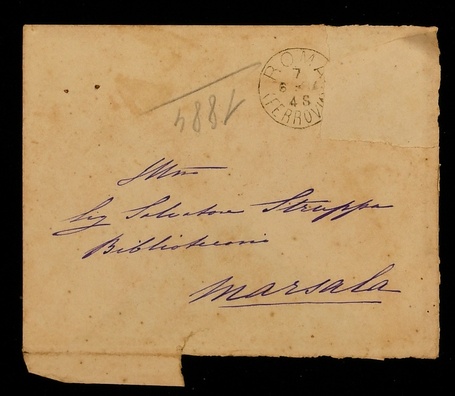 ROMA
7
(FERROVIA
1884
Illmo
Sig Salvatore Struppa
Bibliotecario
Marsala